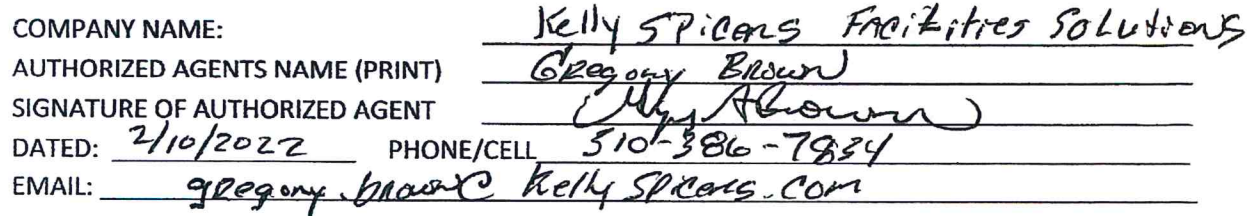 COMPANY NAME: Kelly Spicers Facilities Solutions
AUTHORIZED AGENTS NAME (PRINT) Gregory Brown
SIGNATURE OF AUTHORIZED AGENT
DATED: 2/10/2022 PHONE/CELL 510-386-7834
EMAIL: gregory.brown@kellyspicers.com